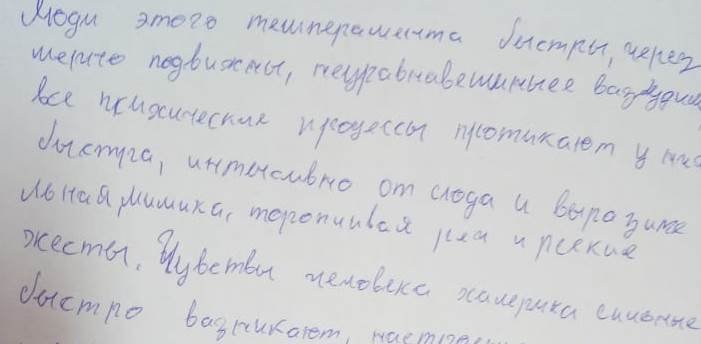 Люди этого темперамента быстры, через
мерно подвижны, неуравнавешиныее вазбудим
все психические процессы протикают у них
быстра, интенсивно от слода и вырозите
льная мимика, торопливая реч и резкие
жесты. Чувствы человека халерика сильные
быстро вазникают,